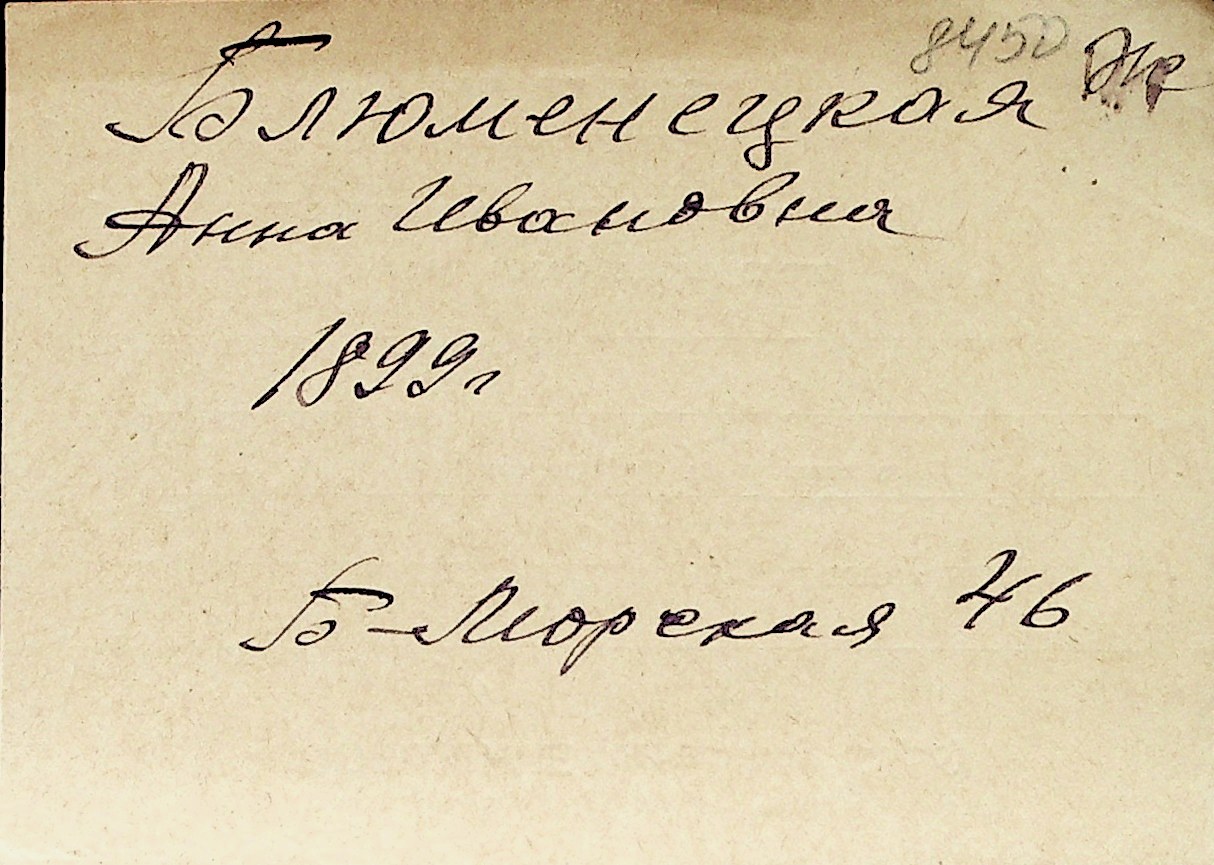 8450
Блюменецкая
Анна Ивановна
1899г
Б-Морская 46